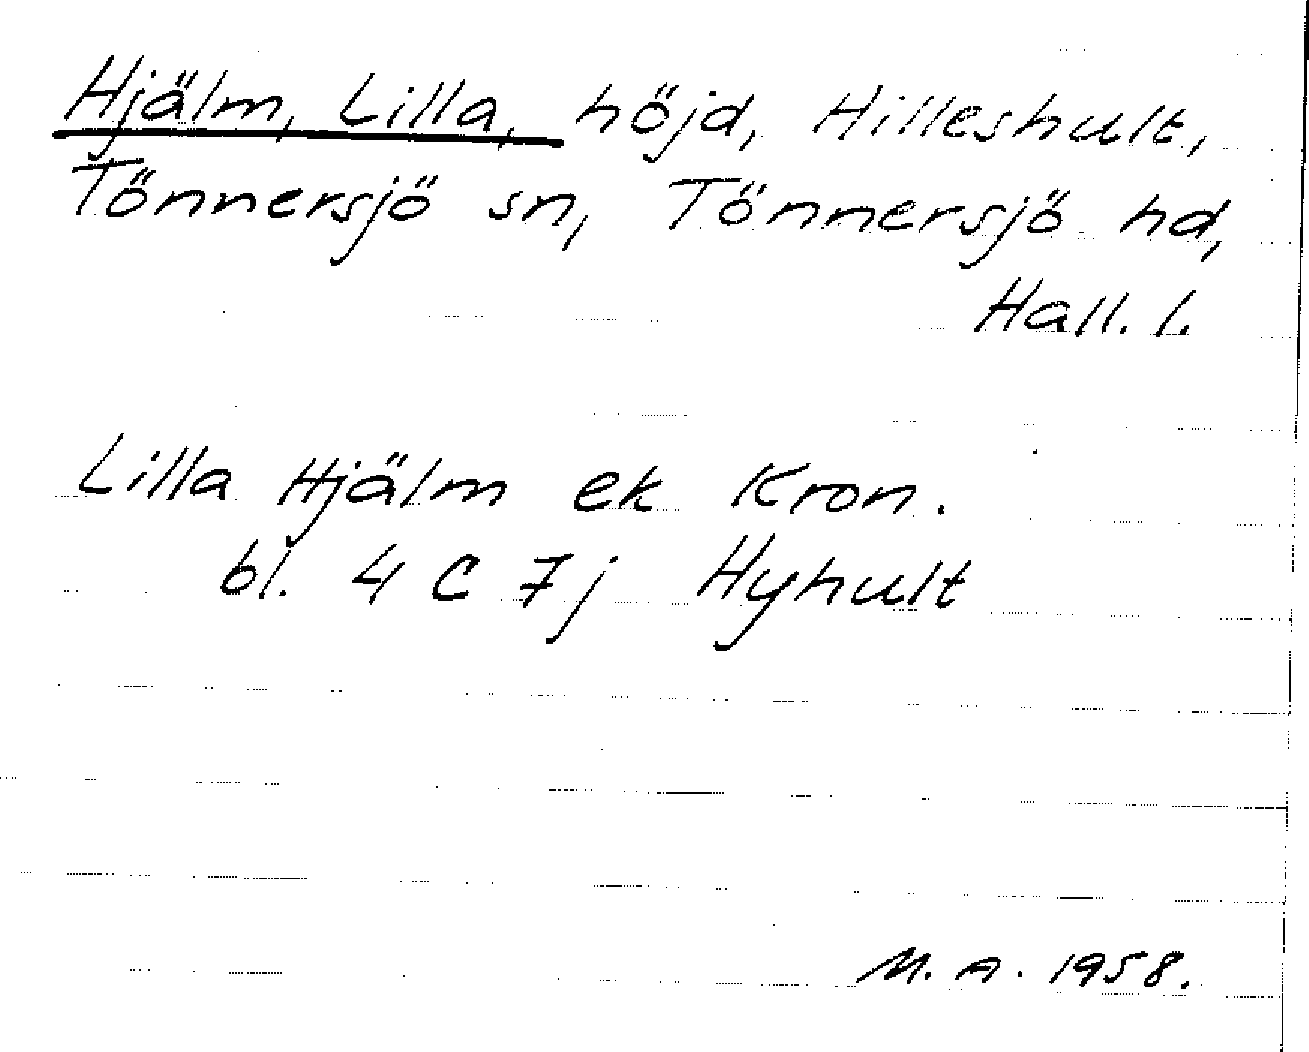 Hjälm, Lilla, höjd, Hilleshult,
Tönnersjö sn, Tönnersjö hd,
Hall. l.
Lilla Hjälm ek Kron.
bl. 4 C 7j Hyhult
M. A. 1958.